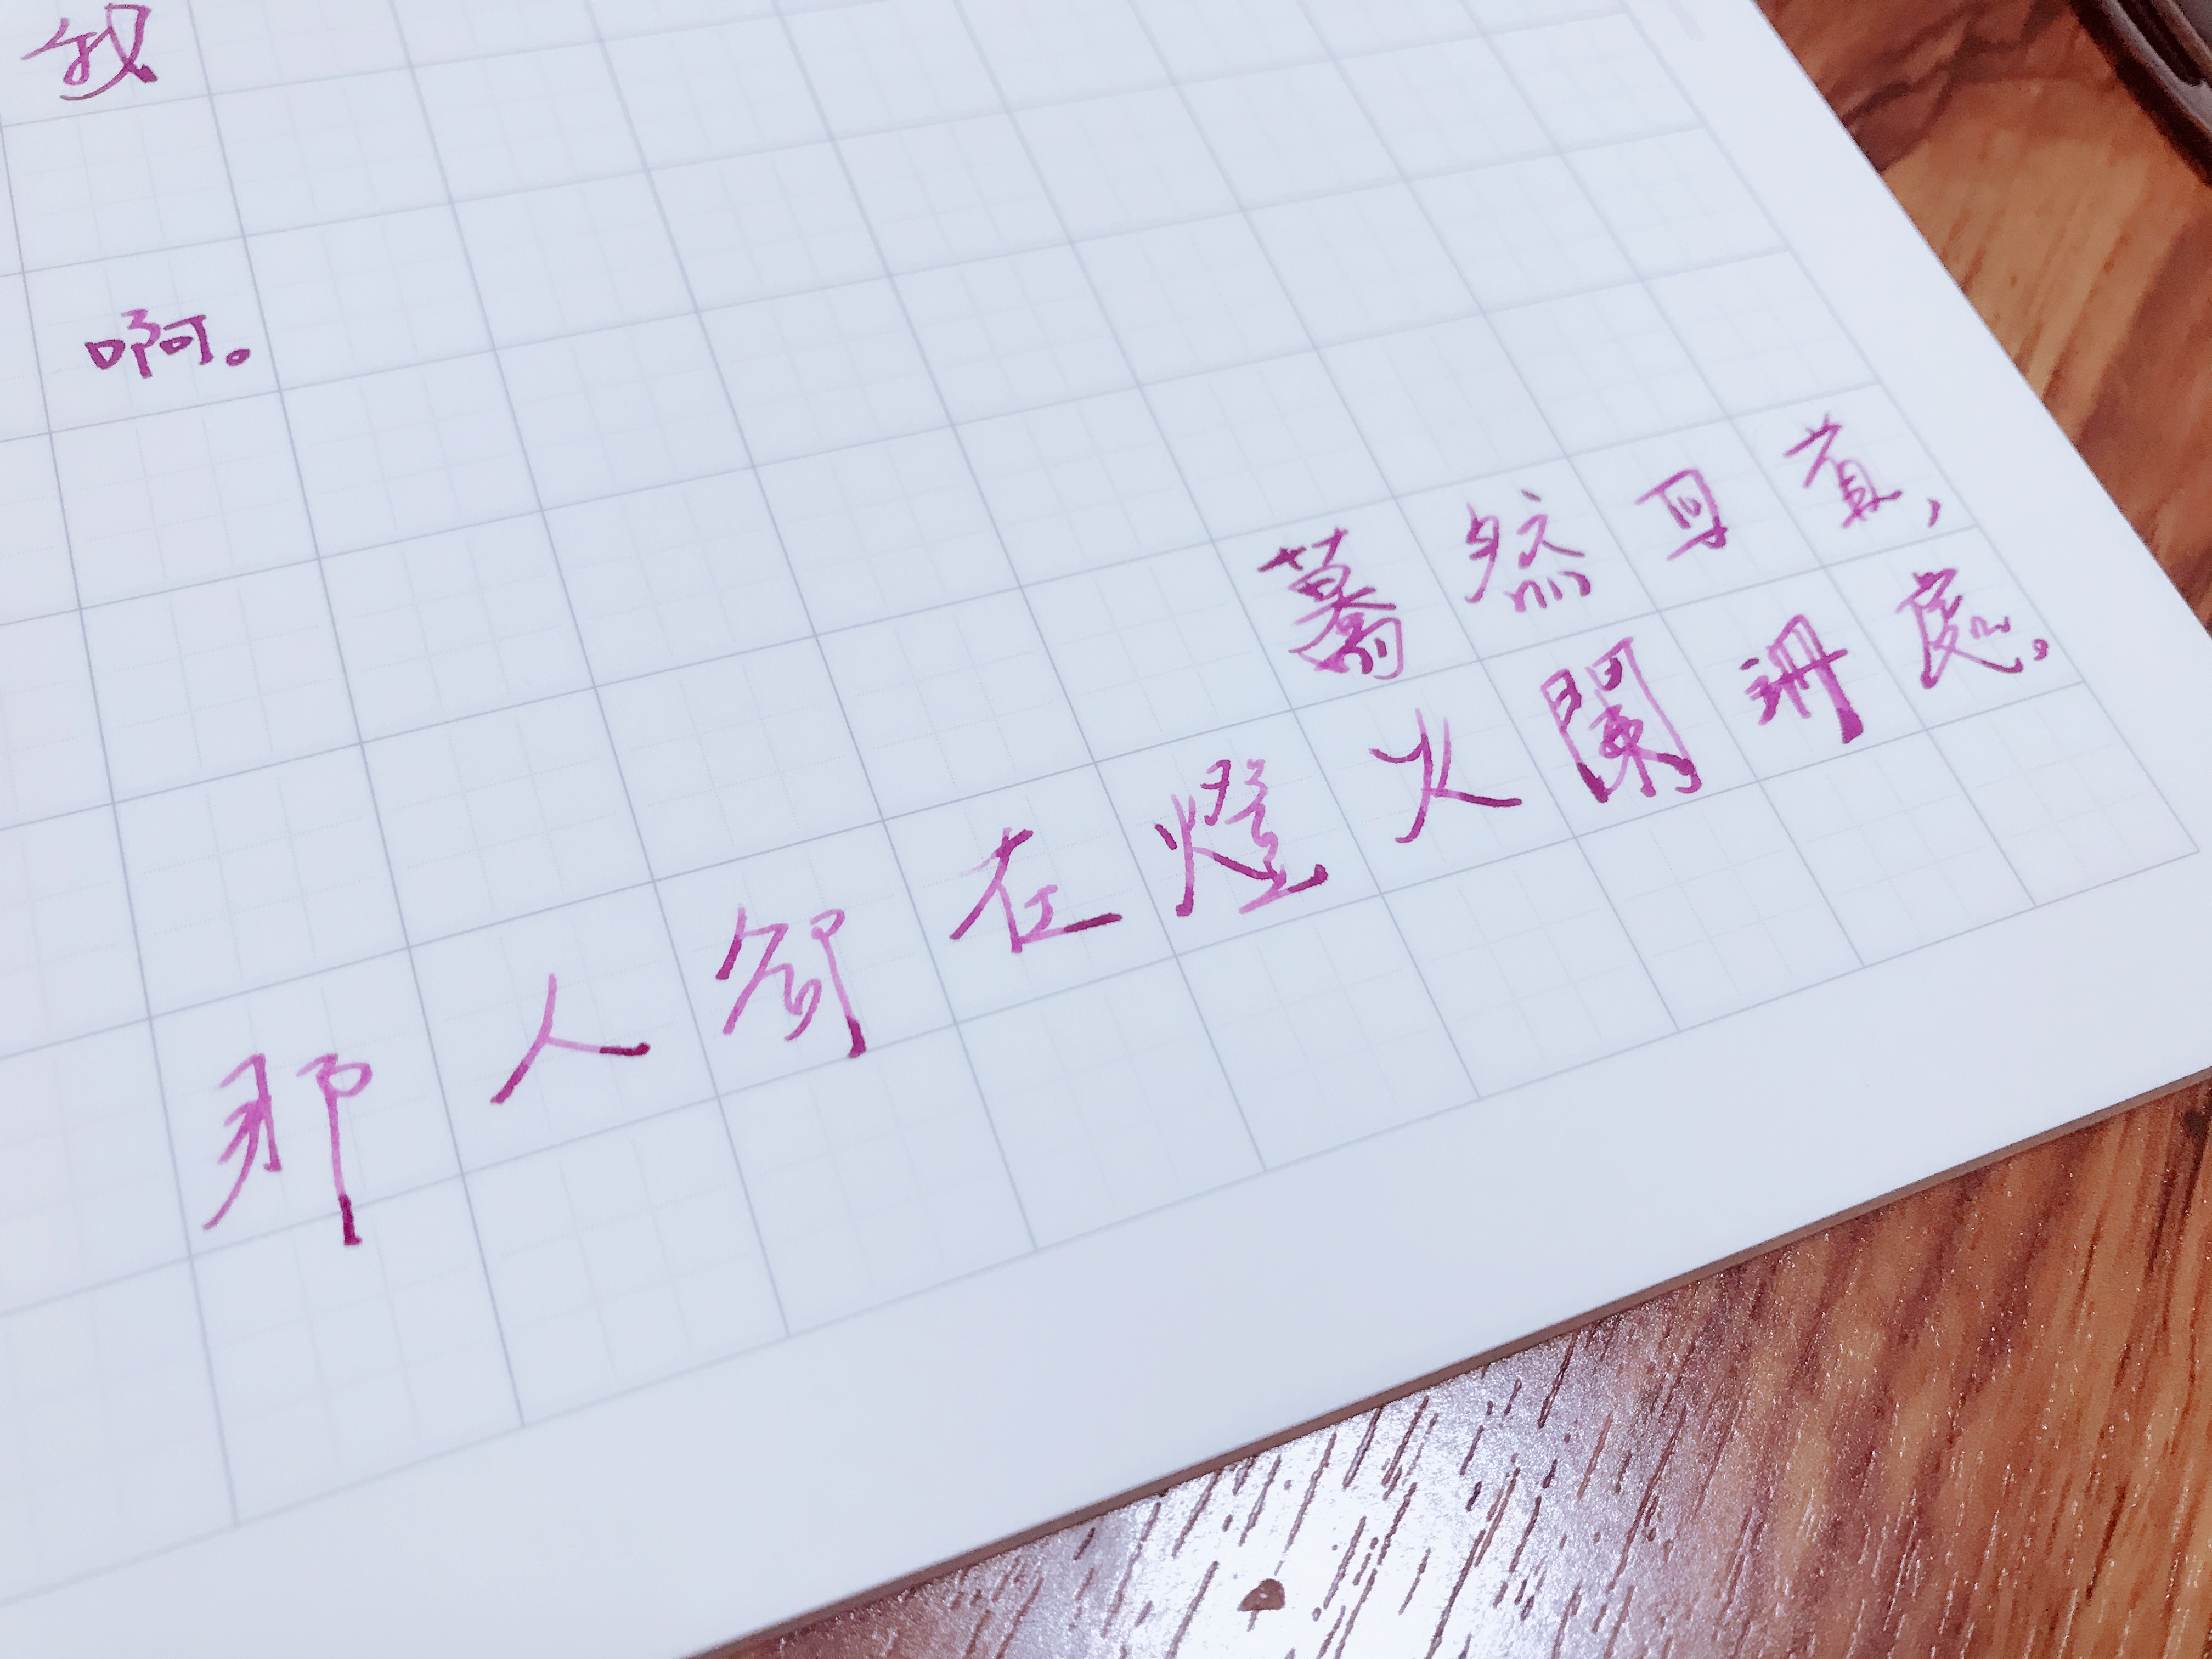 啊。
驀然回首,
那人卻在燈火闌珊處。